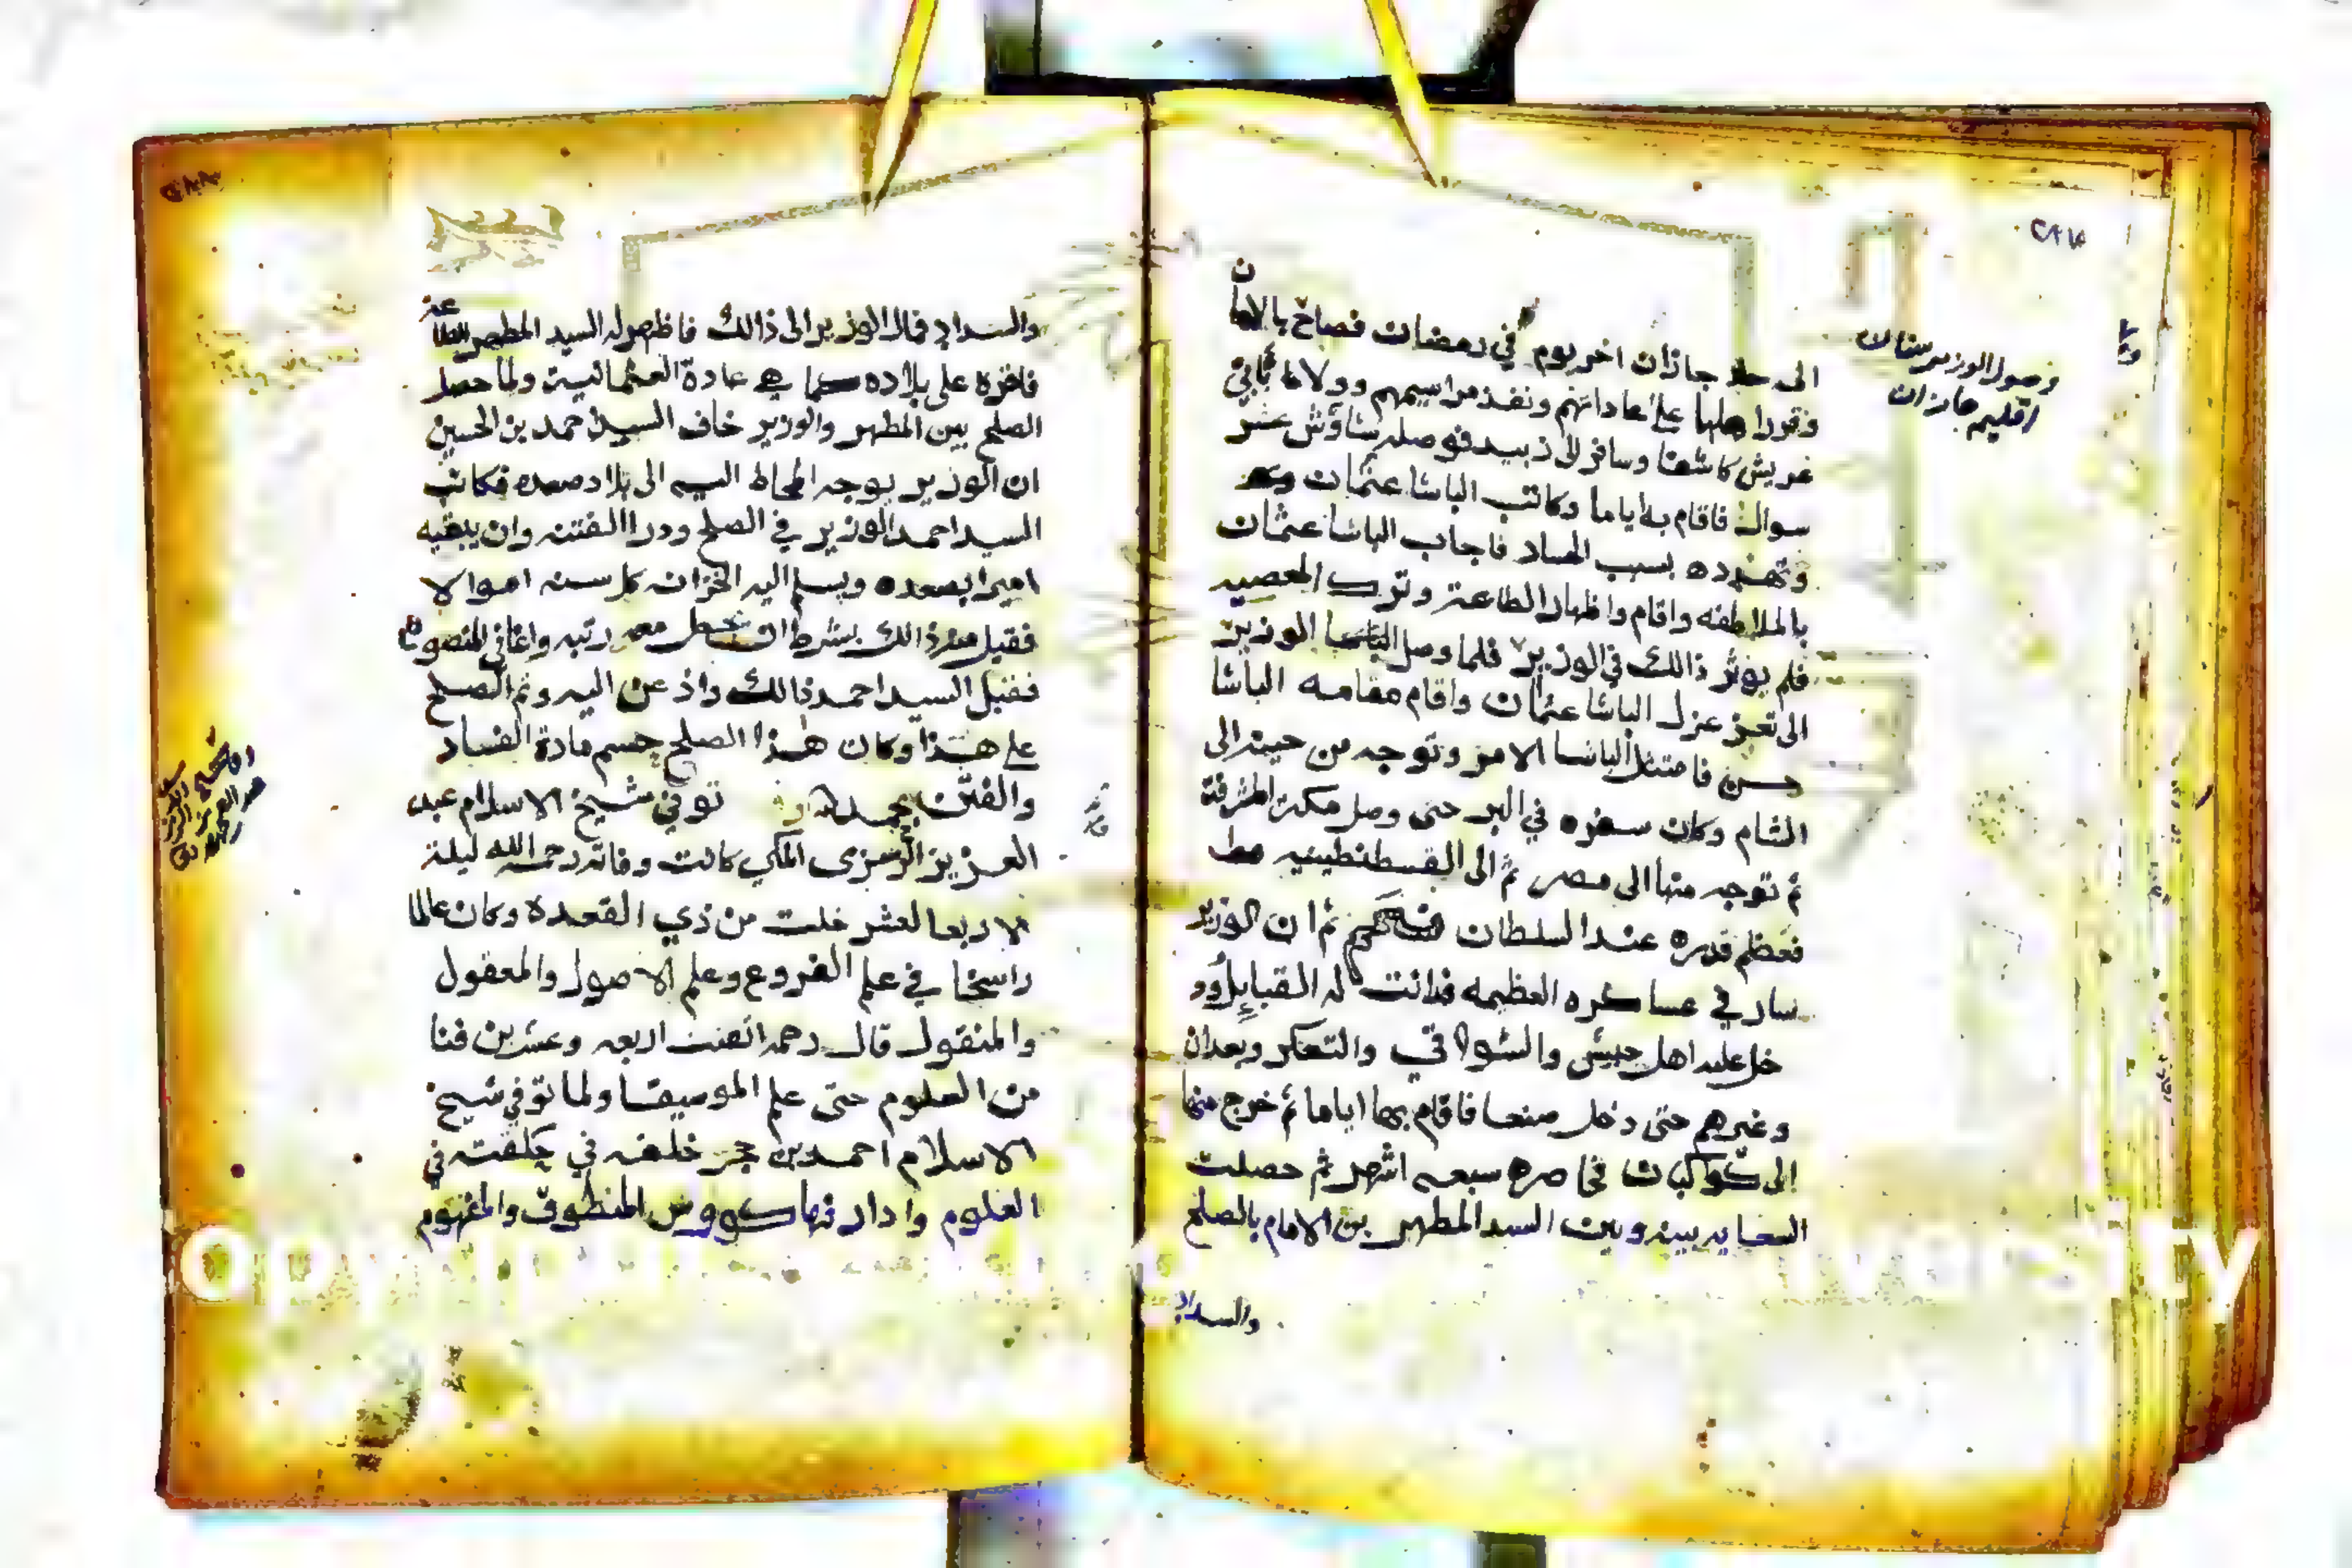 ٢٨٧
وصول الوزير سنان
اقليم جازان
الى جازان اخر يوم في رمضان فصاح بالامان
وقررا هلها على عاداتهم ونفذ مراسيمهم وولا
عريش كاشفا وسافر الى زبيد فوصله شاوش عشر
سوال فاقام به اياما وكاتب الباشا عثمان
وتهدده بسبب الفساد فاجاب الباشا عثمان
بالملاطفه واقام واظهار الطاعة وترك المعصيه
فلم يوثر ذالك في الوزير فلما وصل الباشا الوزير
الى تعز عزل الباشا عثمان واقام مقامه الباشا
حسن فامتثل الباشا الامر وتوجه من حينه الى
الشام وكان سفره في البر حتى وصل مكة المشرفة
ثم توجه منها الى مصر ثم الى القسطنطينيه
فعظم قدره عند السلطان ثم ان الوزير
سار في عساكره العظيمه فدانت له القبايل ود
خل عليه اهل حبيش والشوافي والتعكر وبعدان
وغيرهم حتى دخل صنعا فاقام بها اياما ثم خرج منها
الى كوكبان فحاصره سبعه اشهر ثم حصلت
السعايه بينه وبين السيد المطهر بن الامام بالصلح
والسداد
٢٨٨
والسداد فمال الوزير الى ذالك فاظهر له السيد المطهر الطاعة
فاقره على بلاده كما هي عادة العثمانيه ولما حصل
الصلح بين المطهر والوزير خاف السيد احمد بن الحسين
ان الوزير يوجه المحاط اليه الى بلاد صعده فكاتب
السيد احمد الوزير في الصلح ودرا الفتنه وان يبقيه
اميرا بصعده ويسلم اليه الخزانه كل سنه اموالا
فقبل منه ذالك بشرط ان تجعل معه رتبه واغا في المنصوره
فقبل السيد احمد ذالك واذعن اليه وتم الصلح
على هذا وكان هذا الصلح حسم مادة الفساد
والفتن بحمد الله توفي شيخ الاسلام عبد
العزيز الزمزمى المكي كانت وفاته رحمه الله ليلة
الاربعا لعشر خلت من ذي القعدة وكان عالما
راسخا في علم الفروع وعلم الاصول والمعقول
والمنقول قال رحمه اتقنت اربعه وعشرين فنا
من العلوم حتى علم الموسيقا ولما توفي شيخ
الاسلام احمد بن حجر خلفه في حلقته في
العلوم وادار فيها كووس المنطوق والمفهوم